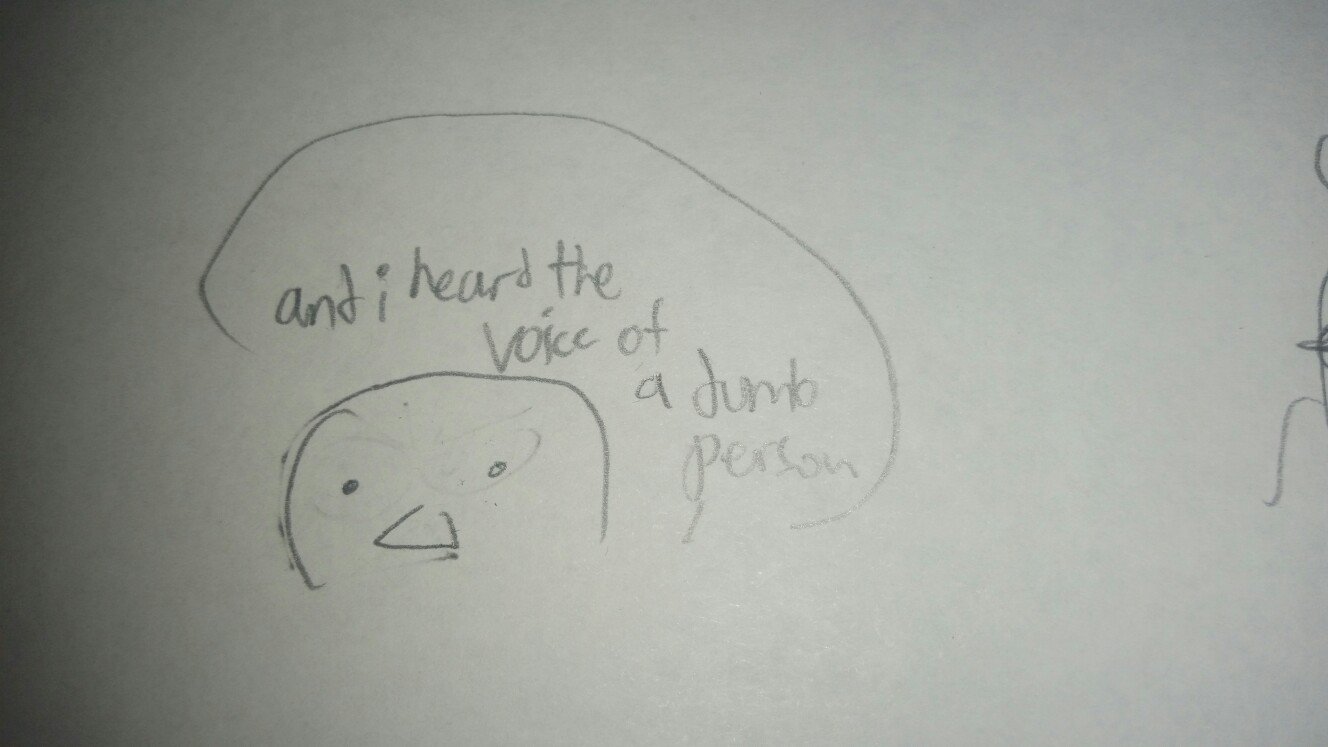 and i heard the
voice of
a dumb
person